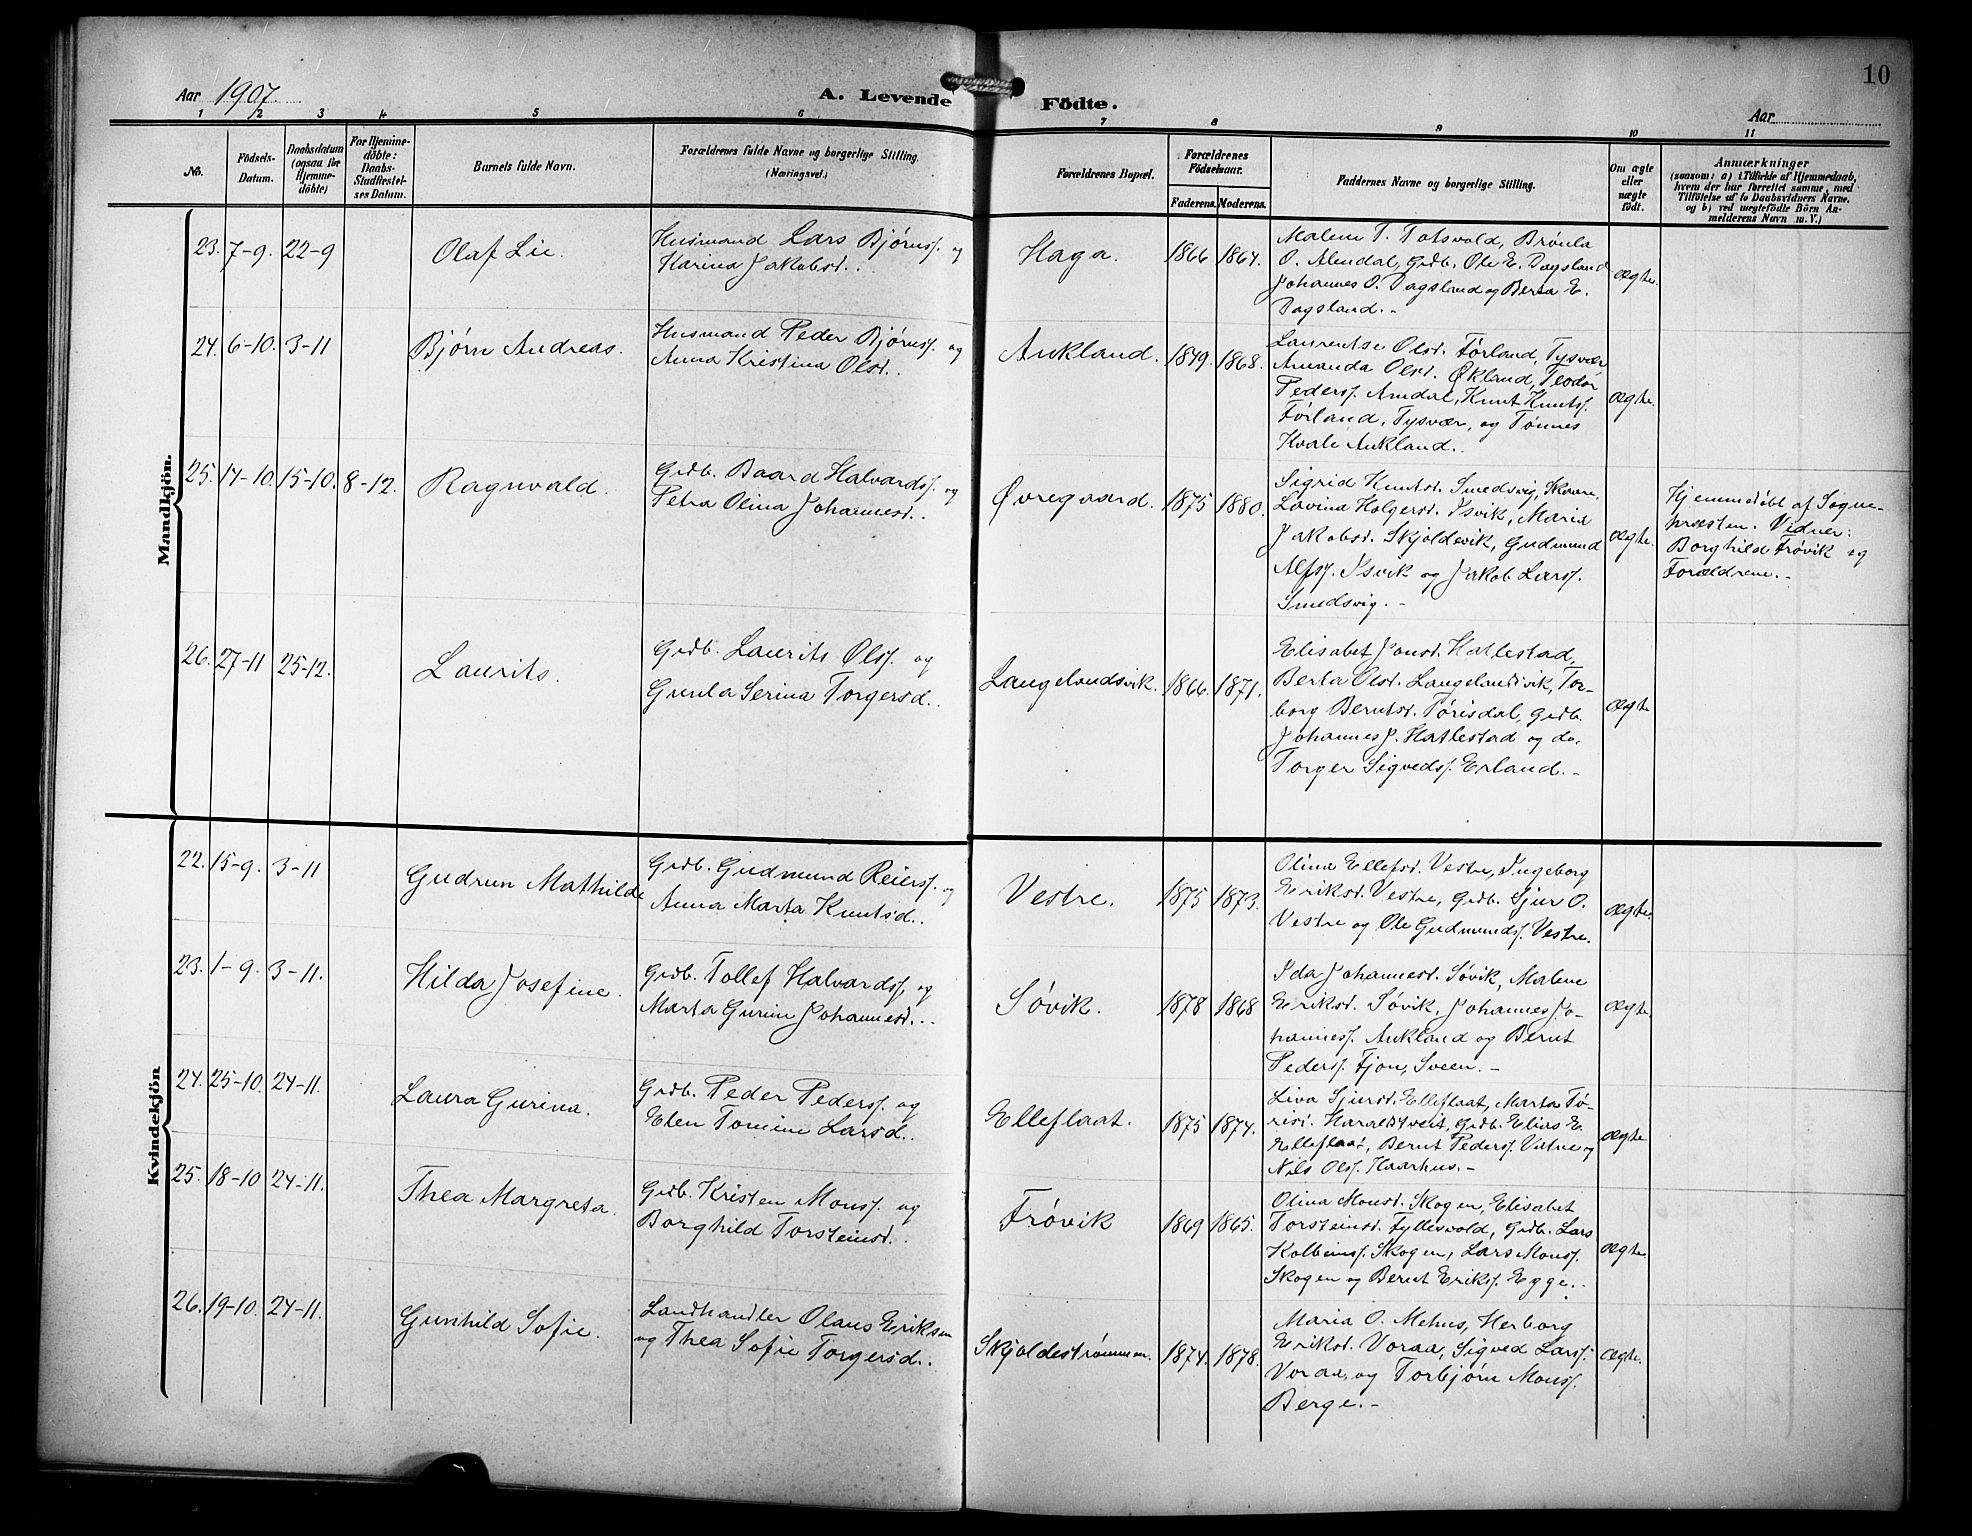 10
Aar 1907.
A. Levende Födte.
Aar
1 2 3 4 5 6 7 8 9 10 11
No.
Födsels-
Datum.
Daabsdatum
(ogsaa for
Hjemme-
döbte)
For Hjemme-
döbte:
Daabs-
Stadfæstel-
ses Datum.
Barnets fulde Navn.
Forældrenes fulde Navne og borgerlige Stilling.
(Næringsvei.)
Forældrenes Bopæl.
Forældrenes
Födselsaar.
Faderens. Moderens.
Faddernes Navne og borgerlige Stilling.
Om ægte
eller
uægte
födt.
Anmærkninger
(saasom: a) i Tilfælde af Hjemmedaab,
hvem der har forrettet samme, med
Tilföielse af to Daabsvidners Navne.
og b) ved uægtefödte Börn An-
melderens Navn m. V.)
Mandkjön.
23. 7-9. 22-9
Olaf Lie.
Husmand Lars Bjørnss. og
Karina Jakobsd..
Haga.
1866 1864.
Malene T. Totsvold, Brønla
O. Alendal, Grdb. Ole E. Dagsland
Johannes O. Dagsland og Berta E.
Dagsland.-
Ægte.
24. 6-10. 3-11
Bjørn Andreas.
Husmand Peder Bjørnss. og
Anna Kristina Olsd..
Aukland.
1849. 1868.
Laurentse Olsd. Førland, Tysvær
Amanda Olsd. Økland, Teodor
Pederss. Amdal, Knut Knutss.
Førland, Tysvær, og Tønnes
Kvale Aukland..
Ægte.
25. 14-10. 15-10. 8-12.
Ragnvald.
Grdb. Baard Halvardss. og
Petra Olina Johannesd..
Øvregaard.
1875 1880.
Sigrid Knutsd. Smedsvig, Skaare,
Lavina Holgersd. Isvik, Maria
Jakobsd. Skjoldevik, Gudmund
Alfss. Isvik og Jakob Larss.
Smedsvig.-
Ægte.
Hjemmedöbt af Sogne-
præsten. Vidner:
Borghild Frøvik og
Forældrene.-
26. 27-11 25-12.
Laurits.
Grdb. Laurits Olss. og
Gunla Serina Torgersd..
Langelandsvik.
1866. 1871.
Elisabet Jonsd. Hatlestad,
Berta Olsd. Langelandsvik, Tor-
borg Berntsd. Tørisdal, Grdb.
Johannes J. Hatlestad og do.
Torger Sigvedss. Erland.-
Ægte
Kvindekjön
22. 15-9. 3-11
Gudrun Mathilde
Grdb. Gudmund Reierss. og
Anna Marta Knutsd..
Vestre.
1875 1873.
Olina Ellefsd. Vestre, Ingeborg
Eriksd. Vestre, Grdb. Sjur O.
Vestre og Ole Gudmundss. Vestre.
Ægte.
23. 1-9. 3-11.
Hilda Josefine.
Grdb. Tollef Halvardss. og
Marta Gurine Johannesd...
Søvik.
1878 1868
Ida Johannesd. Søvik, Malene
Eriksd. Søvik, Johannes Jo-
hanness. Aukland og Bernt
Pederss. Fjon, Sveen.-
Ægte.
24. 25-10. 24-11.
Laura Gurina.
Grdb. Peder Pederss. og
Elen Tomine Larsd..
Elleflaat.
1875 1874.
Liva Sjursd. Elleflaat, Marta Tø-
risd. Haraldstveit, Grdb. Elias E.
Elleflaat, Bernt Pederss. Vatne og
Nils Olss. Haarhus.-
Ægte
25. 18-10 24-11.
Thea Margreta.
Grdb. Kristen Monss. og
Borghild Torsteinsd..
Frøvik
1869 1865.
Olina Monsd. Skogen, Elisabet
Torsteinsd. Fyllesvold, Grdb. Lars
Kolbeinss. Skogen, Lars Monss.
Skogen og Bernt Erikss. Egge..
Ægte.
26. 19-10. 24-11.
Gunhild Sofie.
Landhandler Olaus Eriksen
og Thea Sofie Torgersd..
Skjoldestrømmen.
1874. 1878.
Maria O. Mehus, Herborg
Eriksd. Voraa, Sigved Larss.
Voraa, og Torbjørn Monss.
Berge.-
Ægte.